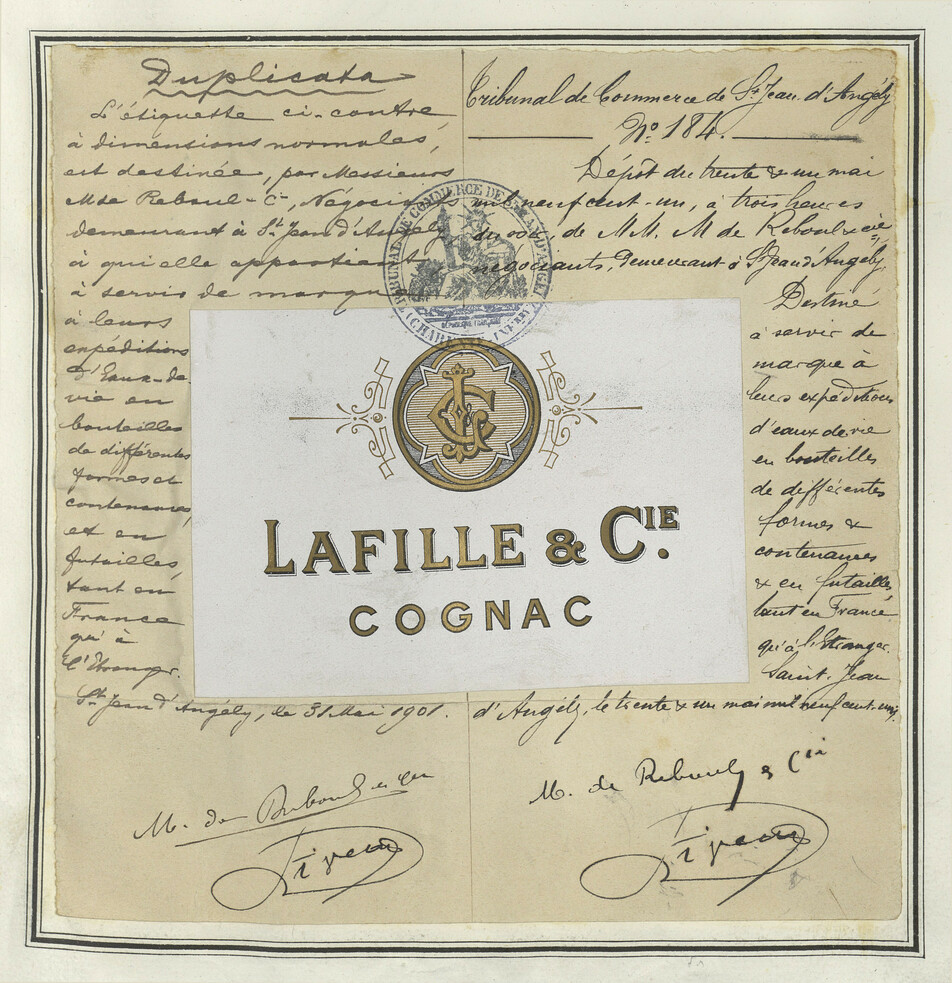 Duplicata
L'étiquette ci-contre
à dimensions normales,
est destinée, par Messieurs
M de Reboul & Cie, Négociants
demeurant à St Jean d'Angély
à qui elle appartient
à servir de marque
à leurs
expéditions
d'Eaux-de-
vie en
bouteilles
de différentes
formes et
contenances,
et en
futailles,
tant en
France
qu'à
l'Etranger.
St Jean d'Angély, le 31 Mai 1901.
M. de Reboul et Cie
Tribunal de Commerce de St Jean d'Angély
No 184.
Dépôt du trente & un mai
mil neuf cent un, à trois heures
du soir, de MM. M de Reboul & Cie,
négociants, demeurant à St Jean d'Angély,
Destiné
à servir de
marque à
leurs expéditions
d'eaux de vie
en bouteilles
de différentes
formes &
contenances
& en futailles
tant en France
qu'à l'Etranger.
Saint-Jean
d'Angély, le trente & un mai mil neuf cent un.
M. de Reboul & Cie
TRIBUNAL DE COMMERCE DE ST JEAN D'ANGELY
(CHARENTE INFRE)
LAFILLE & CIE.
COGNAC